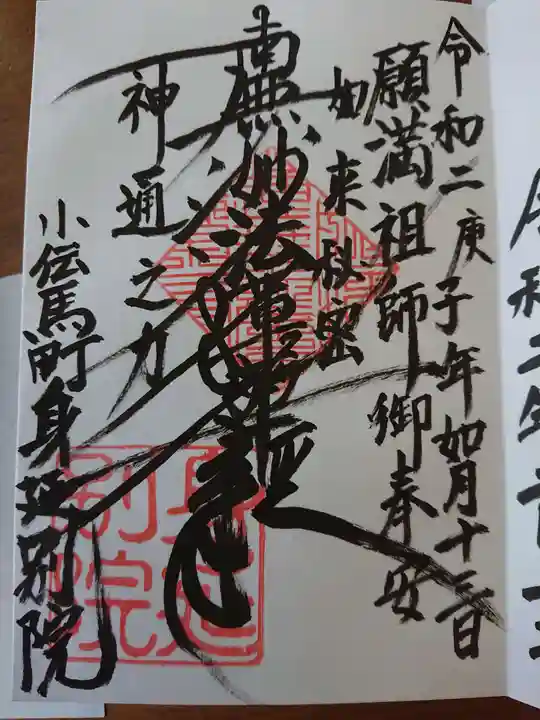 令和二庚子年如月十三日
願満祖師御奉安
如来秘密
南無妙法蓮華経
神通之力
小伝馬町身延別院
身延別院
令和二年